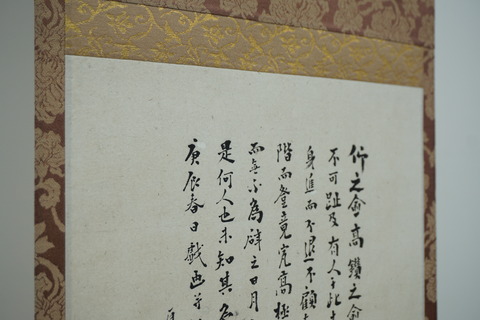 仰之愈高鑽之愈
不可趾及有人于此
身進而不退不顧
階而登竟究高極
而無不為辟之日月
是何人也未知其
庚辰春日戯画